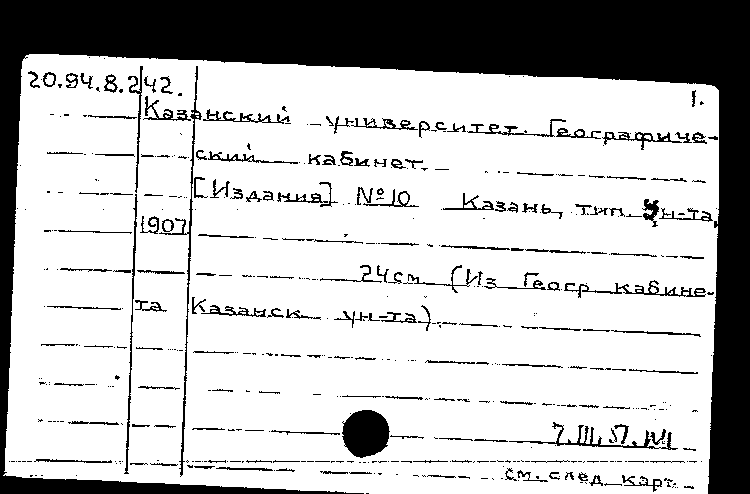 20.94.8.242.
1.
Казанский университет. Географиче-
ский кабинет.
[Издания] №10 Казань, тип. Ун-та,
1907
24см (Из Геогр кабине-
та Казанск ун-та).
7.III.57.
см. след карт.